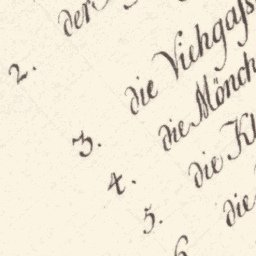 2. der
3. die Viehgass
4. die Mönch
5. die Kl
6 die